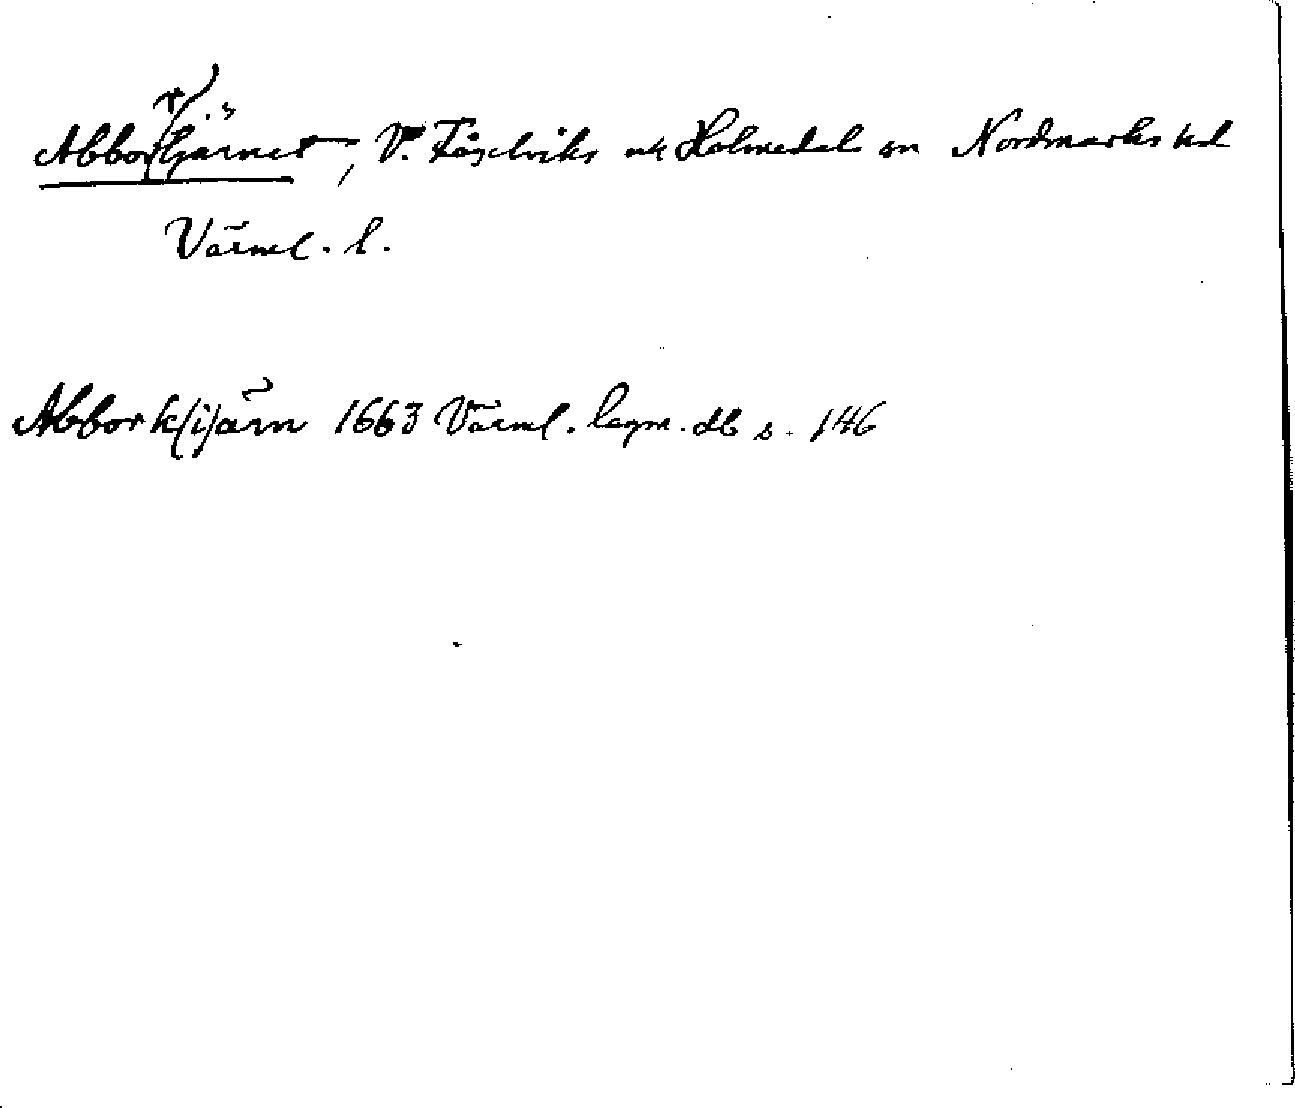 Abbor(r)tjärnet, V. Fågelviks nk Holmedal sn Nordmarks hd
Värml. l.
Abbork(i)ärn 1663 Värml. lagm. db s. 146